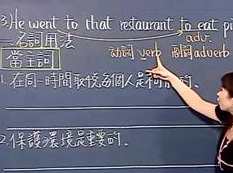 3.He went to that restaurant to eat pi
adv.
名詞用法
動詞 verb 副詞 adverb
當主詞
1.在同一時間取悅每個人是
2.保護環境是重要的.